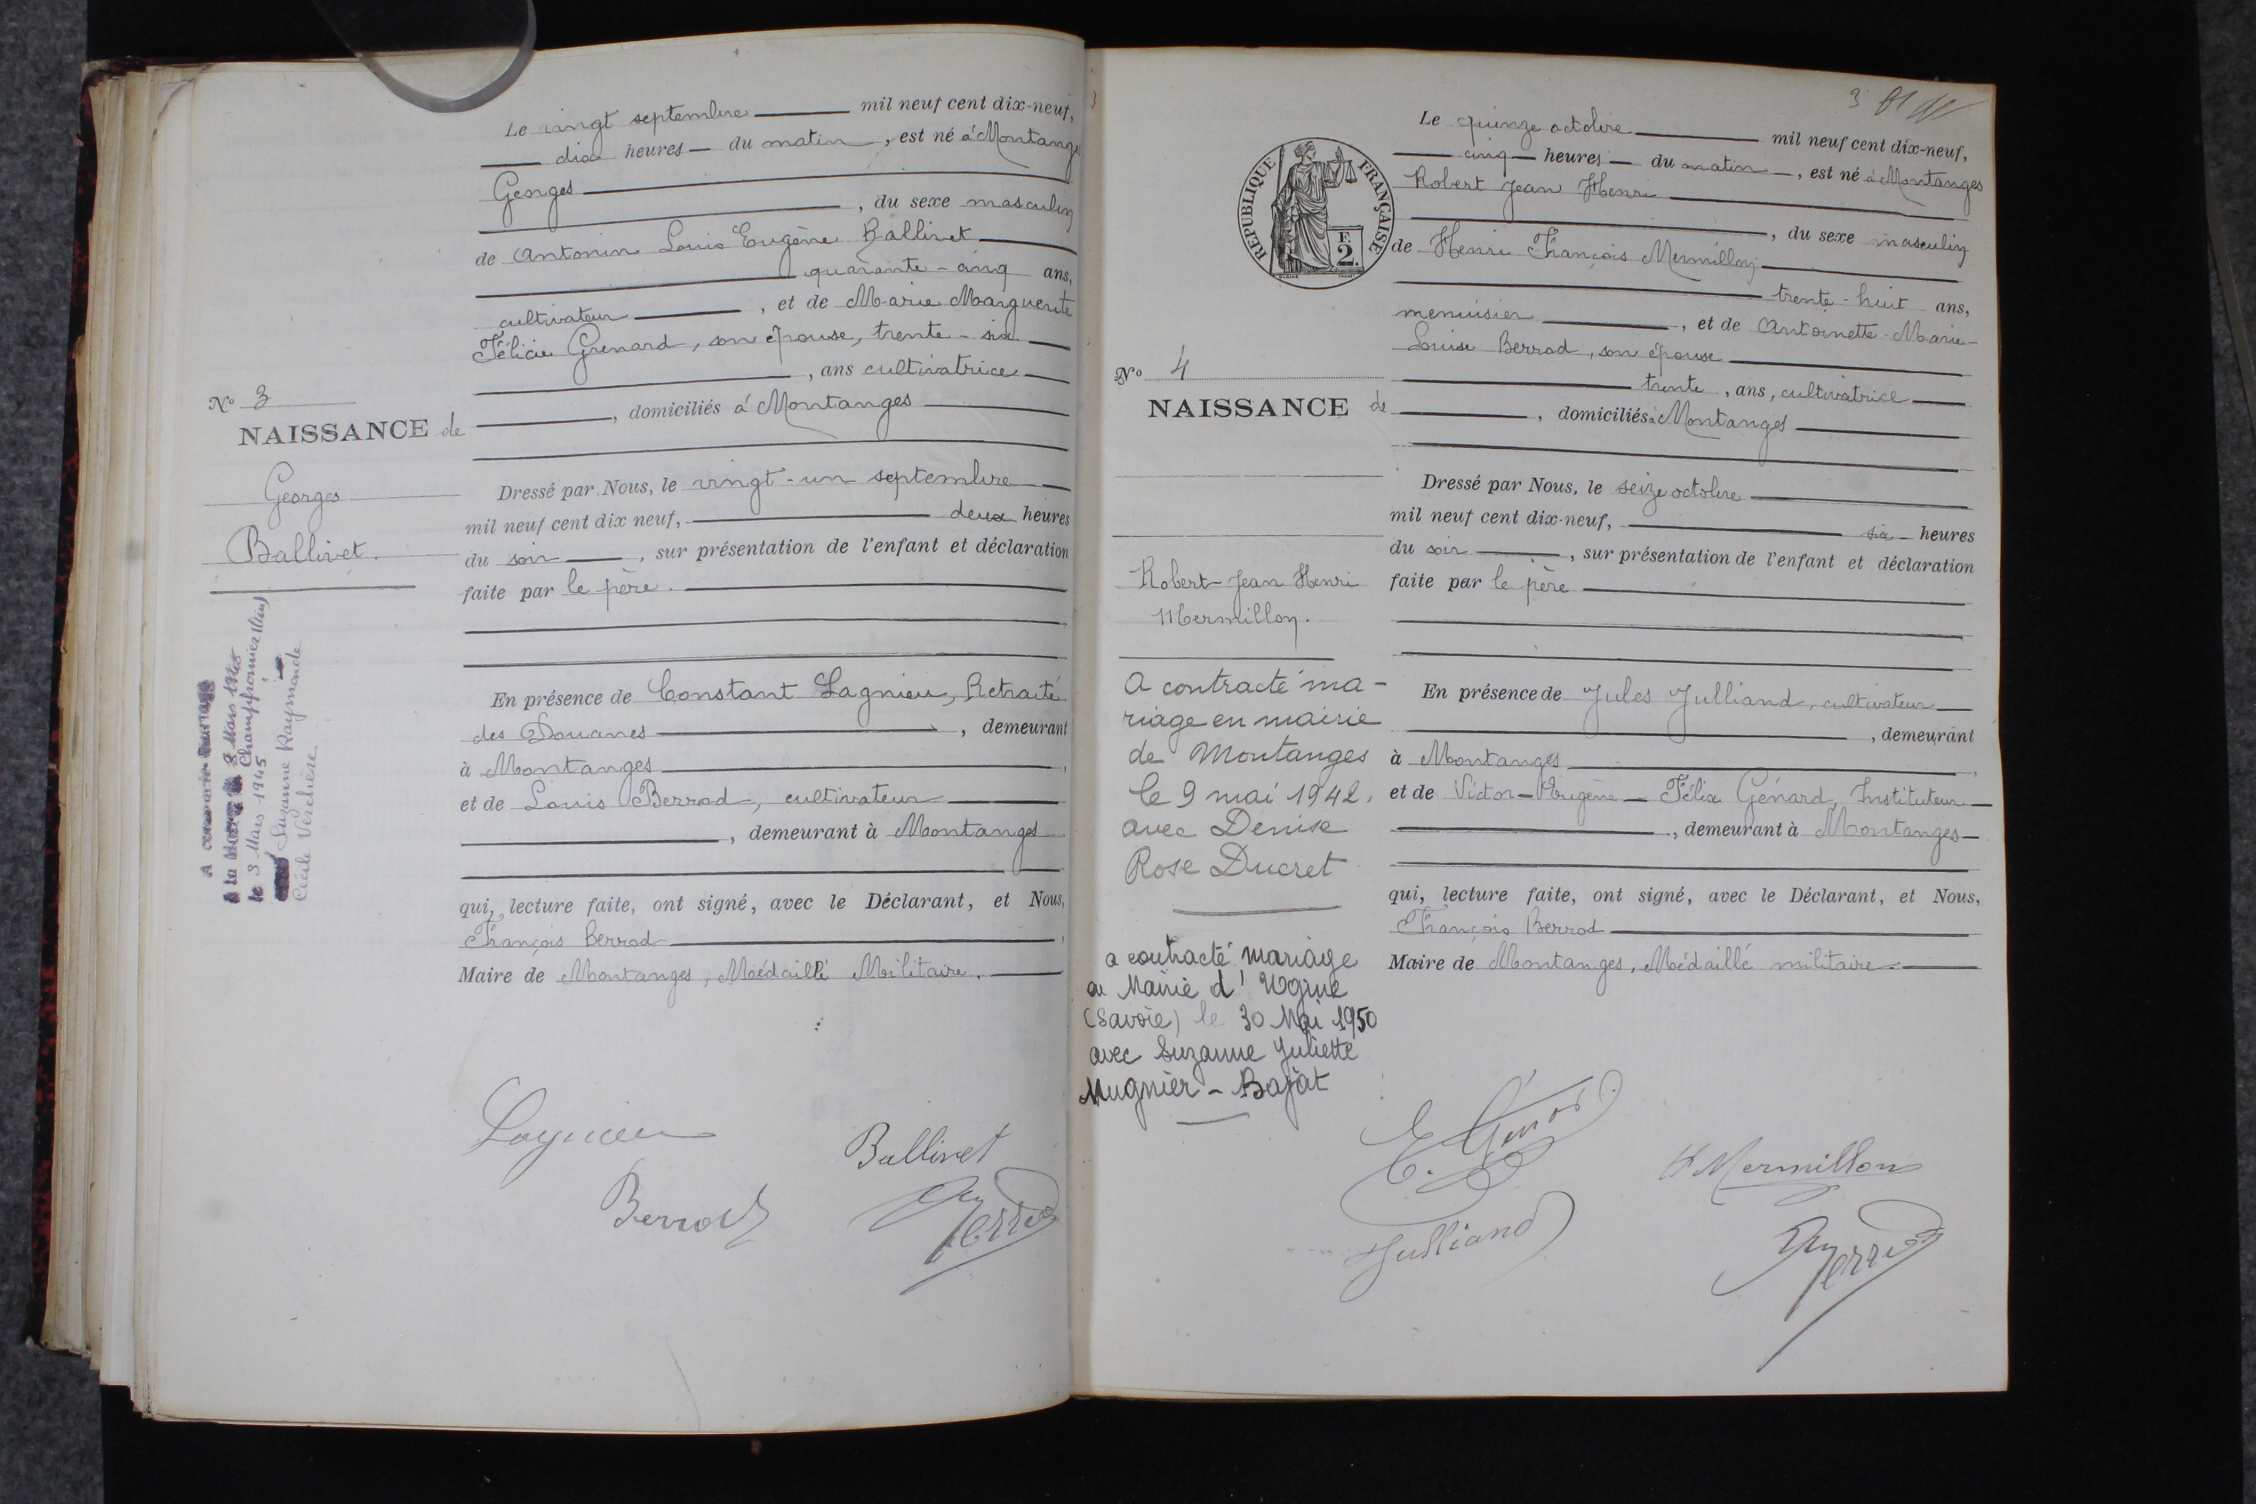 Le vingt septembre mil neuf cent dix-neuf,
dix heures du matin, est né à Montanges
Georges
, du sexe masculin
de Antonin Louis Eugène Ballivet
quarante-cinq ans,
cultivateur, et de Marie Marguerite
Félicie Grenard, son épouse, trente-six
, ans cultivatrice
, domiciliés à Montanges
No 3
NAISSANCE de
Georges
Ballivet.
Dressé par Nous, le vingt-un septembre
mil neuf cent dix neuf, deux heures
du soir, sur présentation de l'enfant et déclaration
faite par le père.
En présence de Constant Lagnieu, Retraité
des Douanes, demeurant
à Montanges,
et de Louis Berrod, cultivateur
, demeurant à Montanges
qui, lecture faite, ont signé, avec le Déclarant, et Nous,
François Berrod,
Maire de Montanges, Médaillé Militaire.
A contracté mariage
à la Mairie de
Champfromier (Ain)
le 3 Mars 1945
Suzanne Raymonde
Cécile Verchère
Lagnieu
Ballivet
Berrod
Berrod
3
Le quinze octobre mil neuf cent dix-neuf,
cinq heures du matin, est né à Montanges
Robert Jean Henri
, du sexe masculin
de Henri François Mermillon
trente-huit ans,
menuisier, et de Antoinette-Marie-
Louise Berrod, son épouse
trente, ans, cultivatrice
, domiciliés à Montanges
RÉPUBLIQUE FRANÇAISE
F.
2.
No 4
NAISSANCE de
Robert-Jean Henri
Mermillon.
Dressé par Nous, le seize octobre
mil neuf cent dix-neuf, six heures
du soir, sur présentation de l'enfant et déclaration
faite par le père
En présence de Jules Julliand, cultivateur
, demeurant
à Montanges,
et de Victor-Eugène-Félix Génard, Instituteur
, demeurant à Montanges
qui, lecture faite, ont signé, avec le Déclarant, et Nous,
François Berrod
Maire de Montanges, Médaillé militaire.
A contracté ma-
riage en mairie
de Montanges
le 9 mai 1942,
avec Denise
Rose Ducret
a contracté mariage
en Mairie d'Ugine
(Savoie) le 30 Mai 1950
avec Suzanne Juliette
Mugnier-Bajat
H Mermillon
Julliand
Berrod